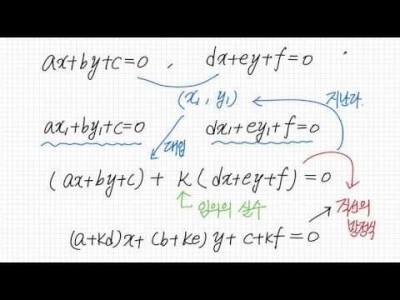 ax+by+c=0 , dx+ey+f=0
(x₁, y₁) 지난다.
ax₁+by₁+c=0 dx₁+ey₁+f=0
대입
(ax+by+c) + k(dx+ey+f)=0
임의의 실수 직선의
방정식
(a+kd)x+(b+ke)y+c+kf=0